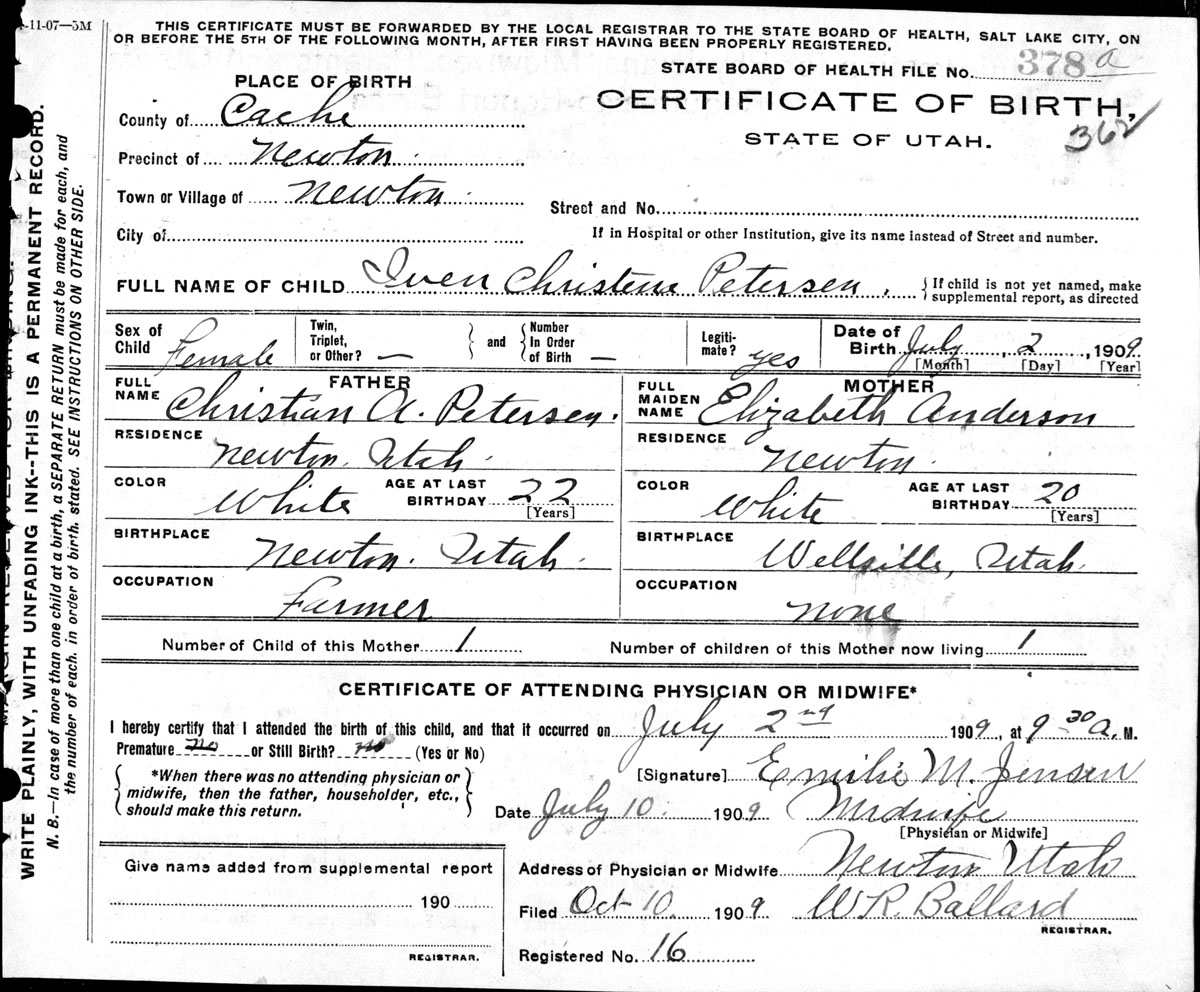 -11-07—5M
THIS CERTIFICATE MUST BE FORWARDED BY THE LOCAL REGISTRAR TO THE STATE BOARD OF HEALTH, SALT LAKE CITY, ON
OR BEFORE THE 5TH OF THE FOLLOWING MONTH, AFTER FIRST HAVING BEEN PROPERLY REGISTERED.
STATE BOARD OF HEALTH FILE No. 378 a
CERTIFICATE OF BIRTH,
STATE OF UTAH.
362
PLACE OF BIRTH
County of Cache
Precinct of Newton
Town or Village of Newton
City of
Street and No.
If in Hospital or other Institution, give its name instead of Street and number.
FULL NAME OF CHILD Iven Christena Petersen. {If child is not yet named, make
supplemental report, as directed
Sex of Child Female
Twin, Triplet, or Other? — } and { Number In Order of Birth —
Legiti-mate? yes
Date of Birth July, 2, 1909
[Month] [Day] [Year]
FATHER
FULL NAME Christian A. Petersen.
RESIDENCE Newton. Utah.
COLOR White AGE AT LAST BIRTHDAY 22
[Years]
BIRTHPLACE Newton. Utah.
OCCUPATION Farmer
MOTHER
FULL MAIDEN NAME Elizabeth Anderson
RESIDENCE Newton.
COLOR White AGE AT LAST BIRTHDAY 20
[Years]
BIRTHPLACE Wellsville, Utah.
OCCUPATION None
Number of Child of this Mother 1 Number of children of this Mother now living 1
CERTIFICATE OF ATTENDING PHYSICIAN OR MIDWIFE*
I hereby certify that I attended the birth of this child, and that it occurred on July 2nd 1909, at 9 30 A. M.
Premature no or Still Birth? no (Yes or No)
{ *When there was no attending physician or
midwife, then the father, householder, etc.,
should make this return. }
[Signature] Emilie M. Jensen
Date July 10. 1909 Midwife
[Physician or Midwife]
Address of Physician or Midwife Newton Utah
Filed Oct 10. 1909 W R. Ballard
REGISTRAR.
Registered No. 16
Give name added from supplemental report
190
REGISTRAR.
WRITE PLAINLY, WITH UNFADING INK--THIS IS A PERMANENT RECORD.
N. B.—In case of more than one child at a birth, a SEPARATE RETURN must be made for each, and
the number of each, in order of birth, stated. SEE INSTRUCTIONS ON OTHER SIDE.